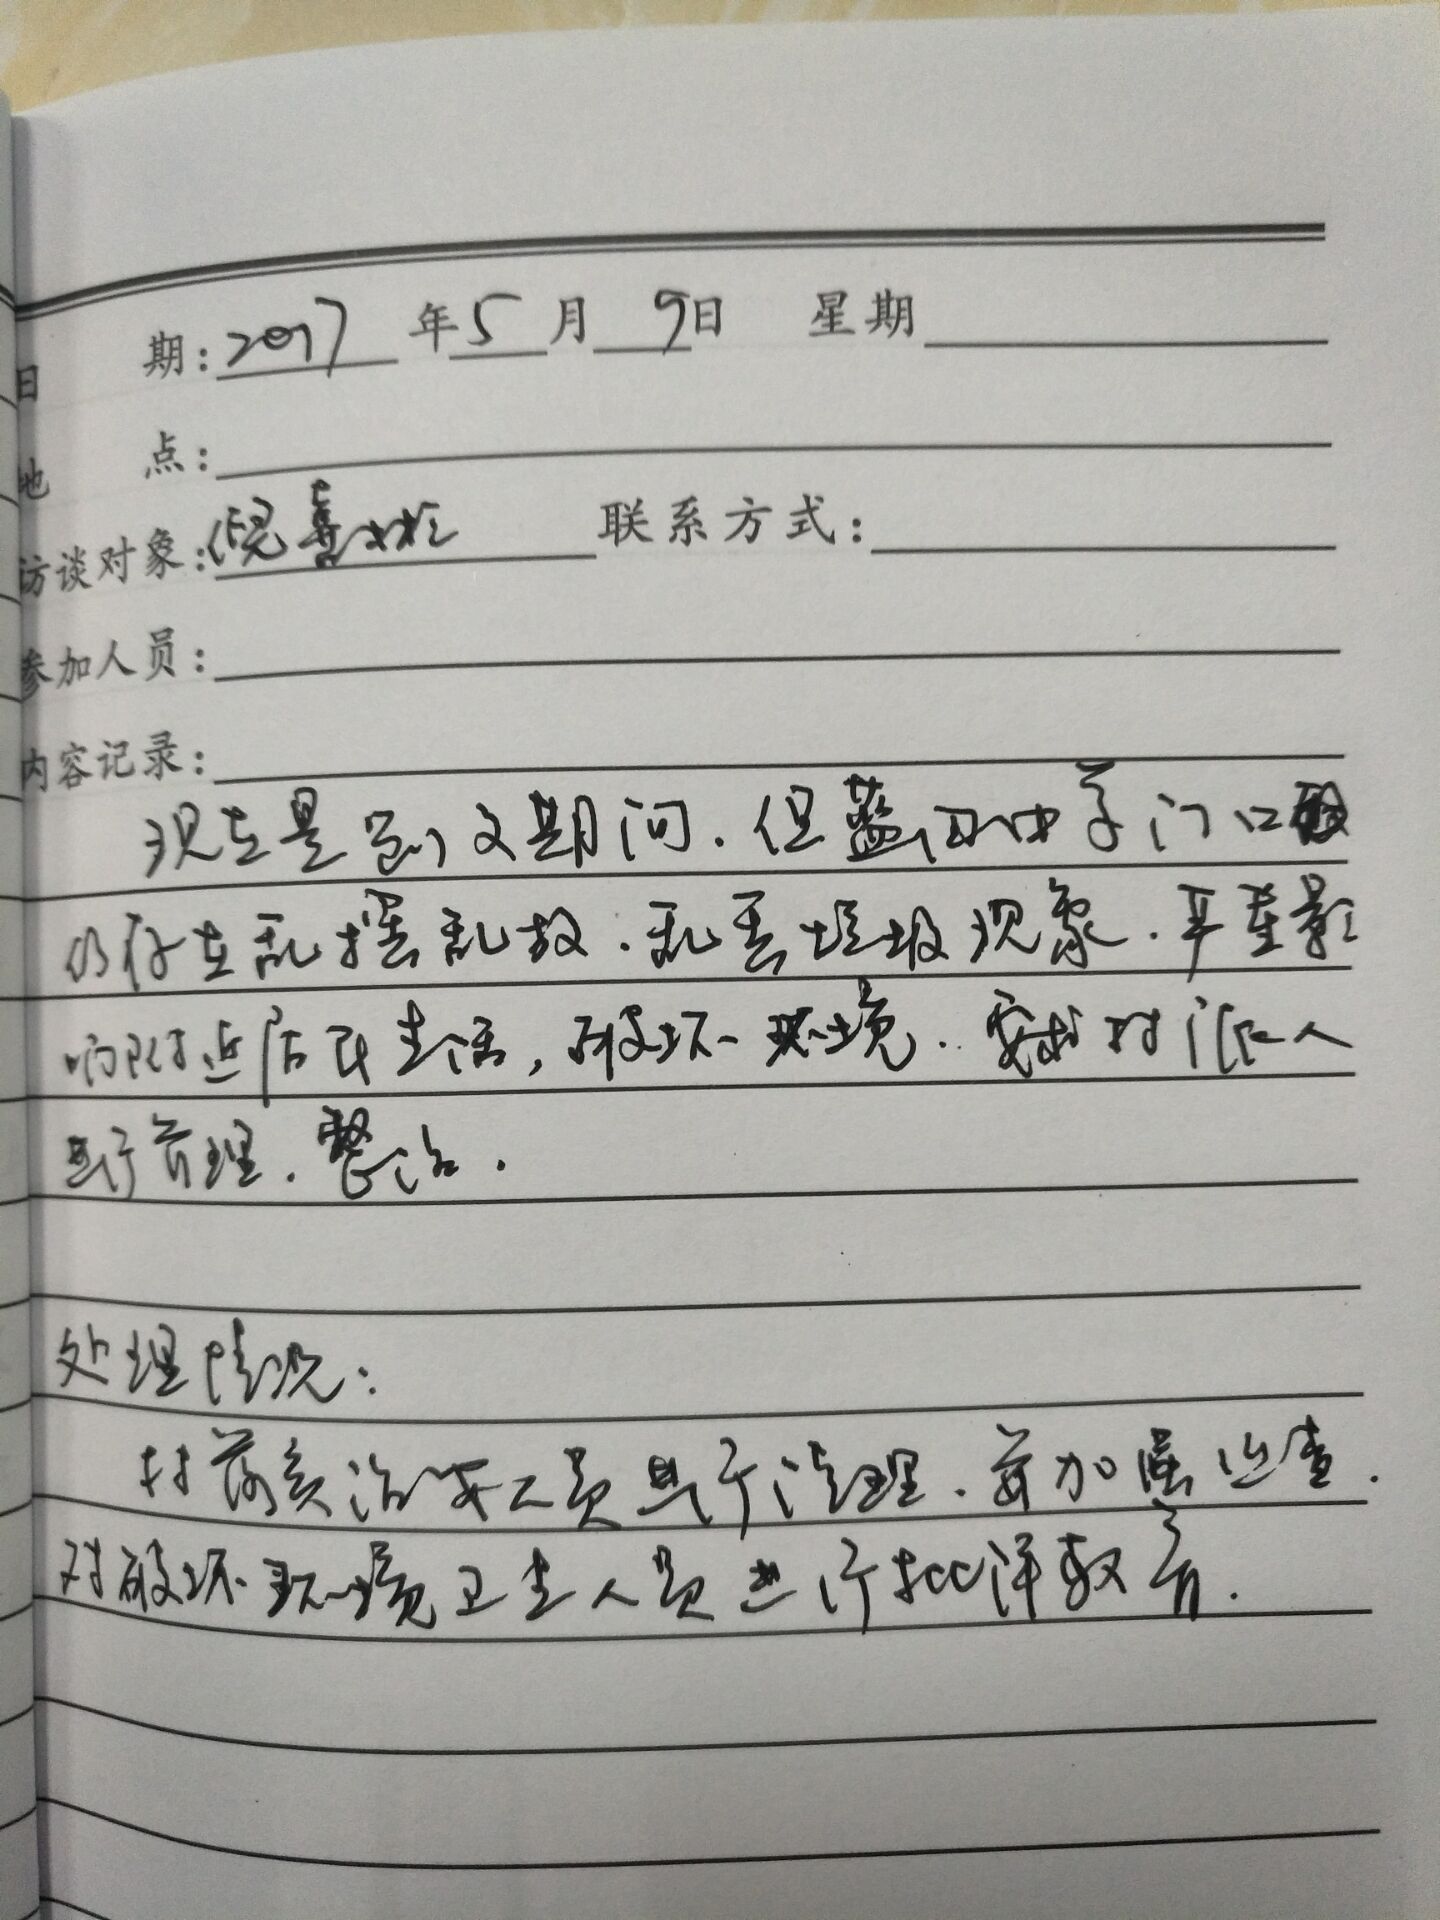 日 期：2017 年 5 月 9日 星期
地 点：
访谈对象：倪喜彬 联系方式：
参加人员：
内容记录：
现在是创文期间．但蓝田中学门口
仍存在乱摆乱放．乱丢垃圾现象．严重影
响附近居民生活，破坏环境．要求对派人
进行管理．整治．
处理情况：
村落实治安人员进行清理．并加强巡查．
对破坏环境卫生人员进行批评教育．